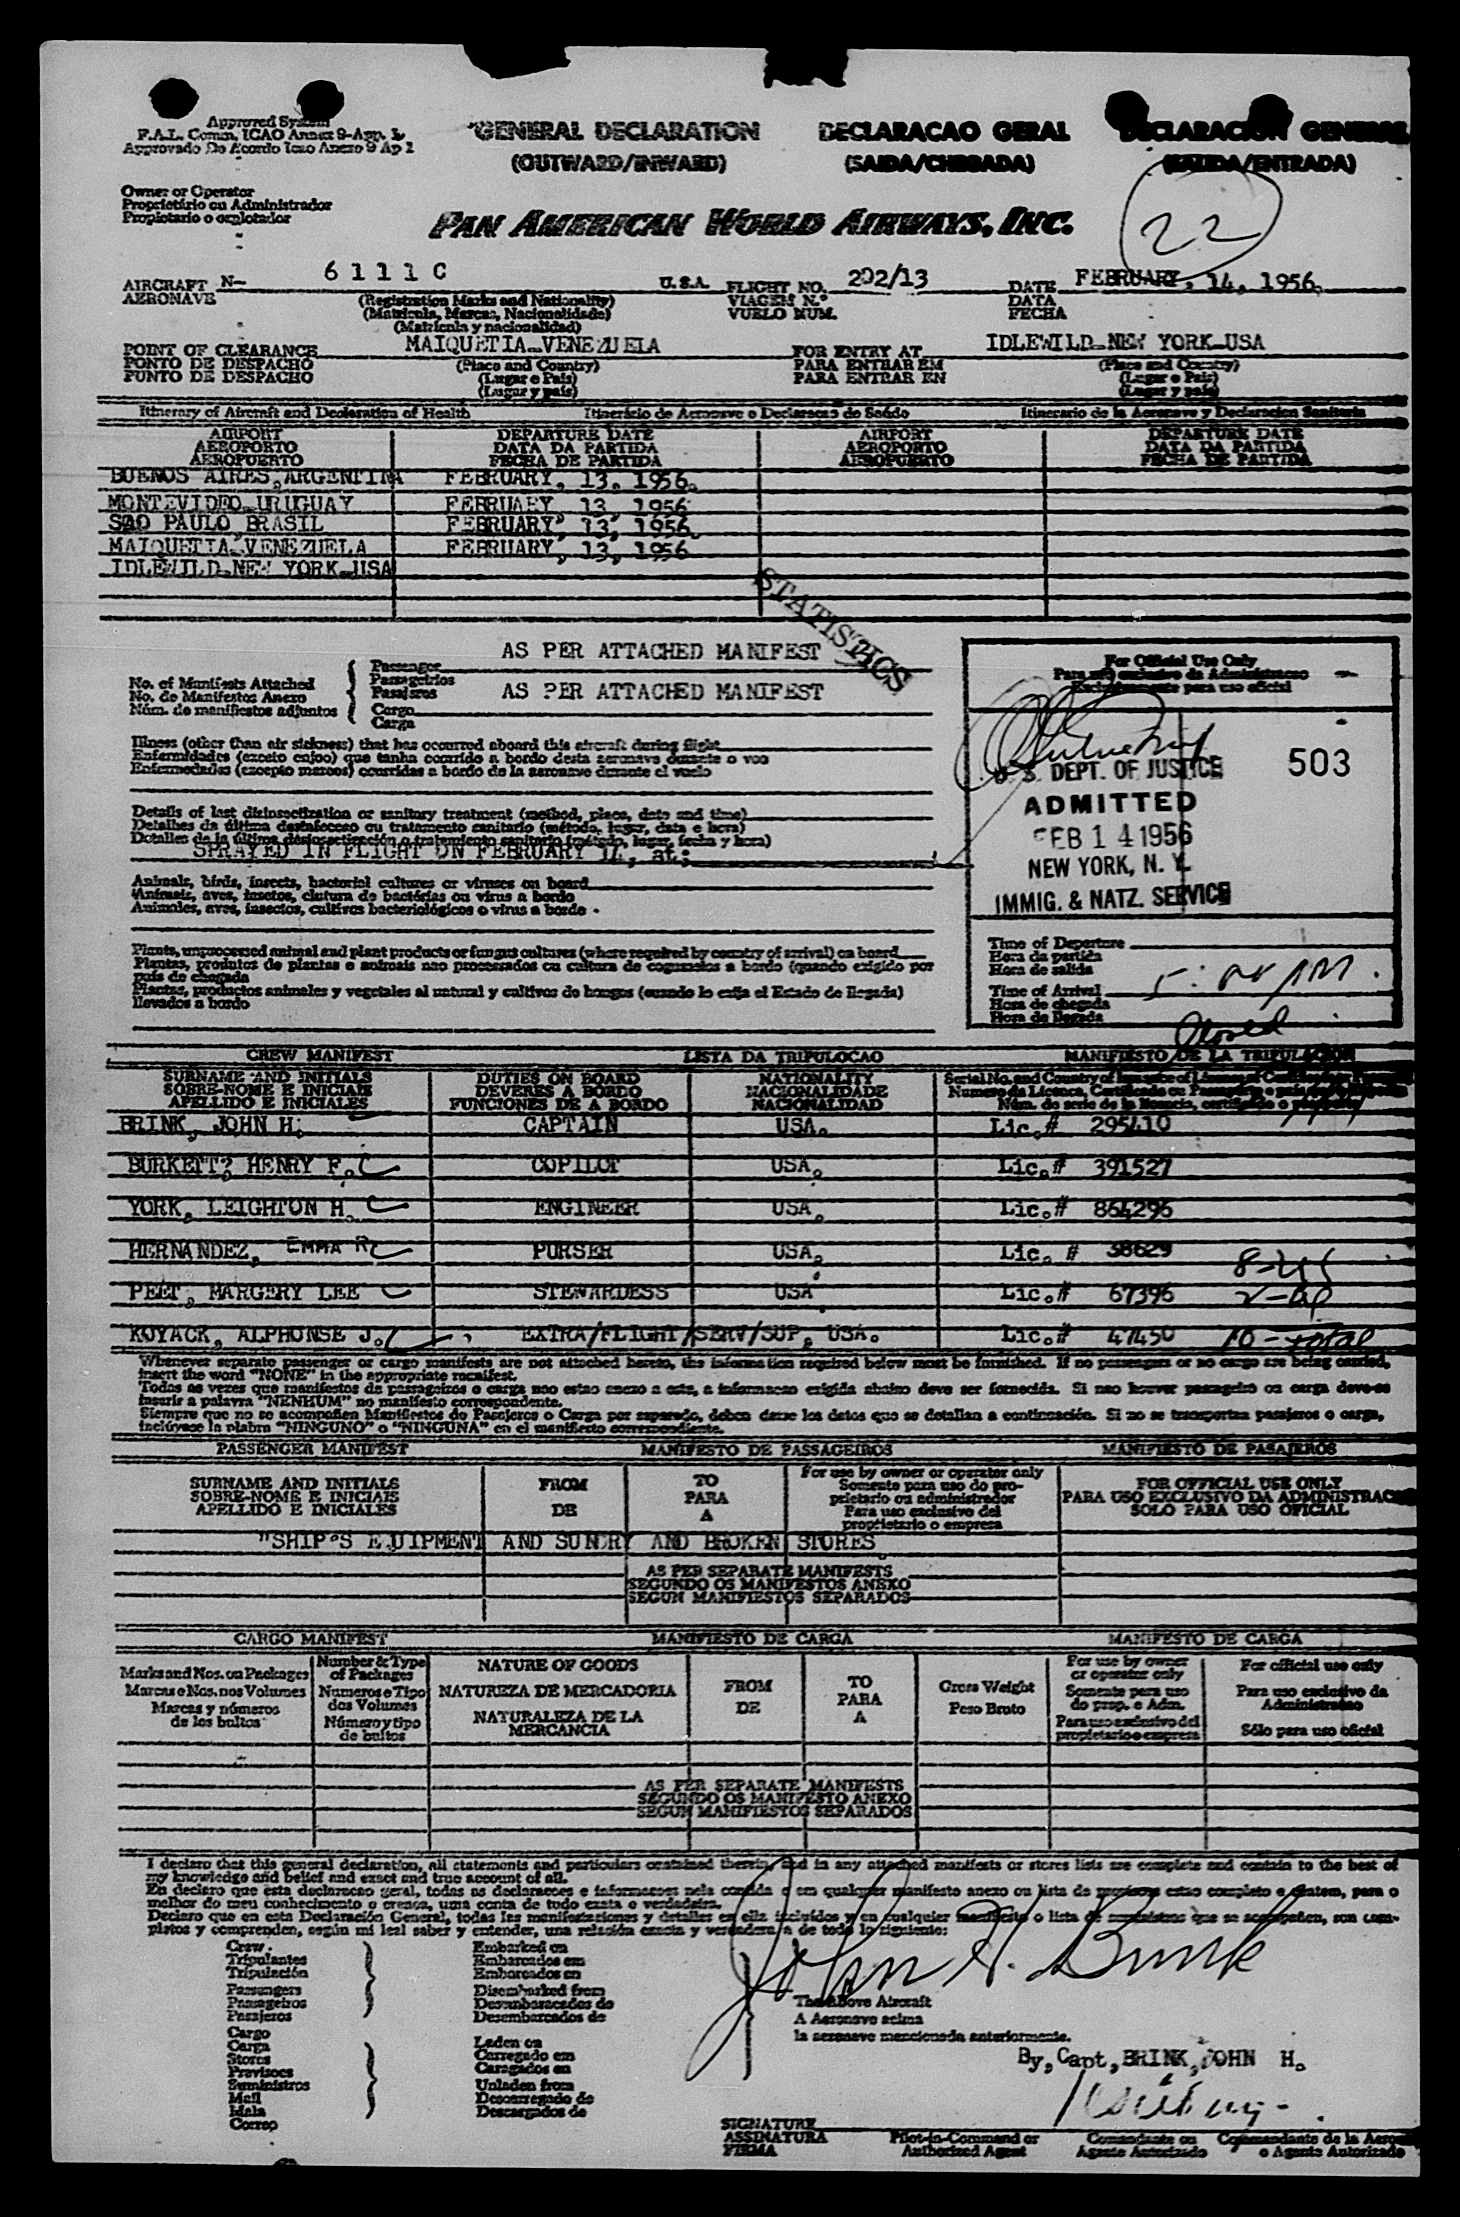 Approved System
F.A.L. Comm. ICAO Annex 9-App. 1
Approvado De Acordo Icao Anexo 9 Ap 1
GENERAL DECLARATION
(OUTWARD/INWARD)
DECLARACAO GERAL
(SAIDA/CHEGADA)
DECLARACION GENERAL
(SALIDA/ENTRADA)
Owner or Operator
Proprietário ou Administrador
Propietario o explotador
PAN AMERICAN WORLD AIRWAYS, INC.
22
AIRCRAFT N- 6111C U.S.A. FLIGHT NO. 202/13 DATE FEBRUARY, 14, 1956.
AERONAVE (Registration Marks and Nationality) VIAGEM N.º DATA
(Matricula, Marcas, Nacionalidade) VUELO NUM. FECHA
(Matricula y nacionalidad)
POINT OF CLEARANCE MAIQUETIA-VENEZUELA FOR ENTRY AT IDLEWILD-NEW YORK-USA
PONTO DE DESPACHO (Place and Country) PARA ENTRAR EM (Place and Country)
PUNTO DE DESPACHO (Lugar e Pais) PARA ENTRAR EN (Lugar e Pais)
(Lugar y pais) (Lugar y pais)
Itinerary of Aircraft and Declaration of Health Itinerário de Aeronave e Declaracao de Saúde Itinerario de la Aeronave y Declaracion Sanitaria
AIRPORT DEPARTURE DATE AIRPORT DEPARTURE DATE
AEROPORTO DATA DA PARTIDA AEROPORTO DATA DA PARTIDA
AEROPUERTO FECHA DE PARTIDA AEROPUERTO FECHA DE PARTIDA
BUENOS AIRES, ARGENTINA FEBRUARY, 13, 1956.
MONTEVIDEO-URUGUAY FEBRUARY 13 1956
SAO PAULO, BRASIL FEBRUARY, 13, 1956.
MAIQUETIA-VENEZUELA FEBRUARY, 13, 1956
IDLEWILD-NEW YORK-USA
STATISTICS
No. of Manifests Attached
No. de Manifestos Anexo
Núm. de manifiestos adjuntos
Passenger AS PER ATTACHED MANIFEST
Passageiros
Pasajeros
Cargo AS PER ATTACHED MANIFEST
Carga
Illness (other than air sickness) that has occurred aboard this aircraft during flight
Enfermidades (exceto enjoo) que tenha ocorrido a bordo desta aeronave durante o voo
Enfermedades (excepto mareos) ocurridas a bordo de la aeronave durante el vuelo
Details of last disinsectization or sanitary treatment (method, place, date and time)
Detalhes da última desinfeccao ou tratamento sanitario (método, lugar, data e hora)
Detalles de la última desinsectización o tratamiento sanitario (método, lugar, fecha y hora)
SPRAYED IN FLIGHT ON FEBRUARY 14, at:
Animals, birds, insects, bacterial cultures or viruses on board
Animais, aves, insetos, clutura de bactérias ou virus a bordo
Animales, aves, insectos, cultivos bacteriológicos o virus a bordo
Plants, unprocessed animal and plant products or fungus cultures (where required by country of arrival) on board
Plantas, produtos de plantas e animais nao processados ou cultura de cogumelos a bordo (quando exigido por
país de chegada
Plantas, productos animales y vegetales al natural y cultivos de hongos (cuando lo exija el Estado de llegada)
llevados a bordo
For Official Use Only
Para uso exclusivo da Administracao
Exclusivamente para uso oficial
503
U. S. DEPT. OF JUSTICE
ADMITTED
FEB 14 1956
NEW YORK, N. Y.
IMMIG. & NATZ. SERVICE
Time of Departure
Hora da partida
Hora de salida
Time of Arrival 5:00 PM.
Hora de chegada
Hora de llegada
CREW MANIFEST LISTA DA TRIPULOCAO MANIFIESTO DE LA TRIPULACION
SURNAME AND INITIALS DUTIES ON BOARD NATIONALITY
SOBRE-NOME E INICIAIS DEVERES A BORDO NACIONALIDADE
APELLIDO E INICIALES FUNCIONES DE A BORDO NACIONALIDAD
BRINK, JOHN H. CAPTAIN USA. Lic.# 295410
BURKETT? HENRY F. COPILOT USA. Lic.# 391527
YORK, LEIGHTON H. ENGINEER USA. Lic.# 864296
HERNANDEZ, EMMA R. PURSER USA. Lic. # 38629
PEET, MARGERY LEE STEWARDESS USA Lic.# 67396
KOYACK, ALPHONSE J. EXTRA/FLIGHT/SERV/SUP. USA. Lic.# 47450 10-Total
Whenever separate passenger or cargo manifests are not attached hereto, the information required below must be furnished. If no passengers or no cargo are being carried,
insert the word "NONE" in the appropriate manifest.
Todas as vezes que manifestos de passageiros e carga nao estao anexo a este, a informacao exigida abaixo deve ser fornecida. Si nao houver passageiro ou carga deve-se
inserir a palavra "NENHUM" no manifesto correspondente.
Siempre que no se acompañen Manifiestos de Pasajeros o Carga por separado, deben darse los datos que se detallan a continuación. Si no se transportan pasajeros o carga,
inclúyase la plabra "NINGUNO" o "NINGUNA" en el manifiesto correspondiente.
PASSENGER MANIFEST MANIFESTO DE PASSAGEIROS MANIFIESTO DE PASAJEROS
SURNAME AND INITIALS
SOBRE-NOME E INICIAIS
APELLIDO E INICIALES
FROM
DE
TO
PARA
A
For use by owner or operator only
Somente para uso do pro-
prietario ou administrador
Para uso exclusivo del
propietario o empresa
FOR OFFICIAL USE ONLY
PARA USO EXCLUSIVO DA ADMINISTRACAO
SOLO PARA USO OFICIAL
"SHIP'S EQUIPMENT AND SUNDRY AND BROKEN STORES
AS PER SEPARATE MANIFESTS
SEGUNDO OS MANIFESTOS ANEXO
SEGUN MANIFIESTOS SEPARADOS
CARGO MANIFEST MANIFIESTO DE CARGA MANIFESTO DE CARGA
Marks and Nos. on Packages
Marcas e Nos. nos Volumes
Marcas y números
de los bultos
Number & Type
of Packages
Numeros e Tipo
dos Volumes
Número y tipo
de bultos
NATURE OF GOODS
NATUREZA DE MERCADORIA
NATURALEZA DE LA
MERCANCIA
FROM
DE
TO
PARA
A
Gross Weight
Peso Bruto
For use by owner
or operator only
Somente para uso
do prop. e Adm.
Para uso exclusivo del
propietario o empresa
For official use only
Para uso exclusivo da
Administracao
Sólo para uso oficial
AS PER SEPARATE MANIFESTS
SEGUNDO OS MANIFESTO ANEXO
SEGUN MANIFIESTOS SEPARADOS
I declare that this general declaration, all statements and particulars contained therein, and in any attached manifests or stores lists are complete and contain to the best of
my knowledge and belief and exact and true account of all.
Eu declaro que esta declaracao geral, todas as declaracoes e informacoes nela contida e em qualquer manifesto anexo ou lista de provisoes estao completo e contem, para o
melhor do meu conhecimento e crenca, uma conta de tudo exata e verdadeira.
Declaro que en esta Declaración General, todas las manifestaciones y detalles en ella incluidos y en cualquier manifiesto o lista de suministros que se acompañen, son com-
pletos y comprenden, según mi leal saber y entender, una relación exacta y verdadera de todo lo siguiente:
Crew
Tripulantes
Tripulación
Passengers
Passageiros
Pasajeros
Cargo
Carga
Stores
Provisoes
Suministros
Mail
Mala
Correo
Embarked on
Embarcados em
Embarcados en
Disembarked from
Desembaracados de
Desembarcados de
Laden on
Carregado em
Cargados en
Unladen from
Descarregado de
Descargados de
John H. Brink
The Above Aircraft
A Aeronave acima
la aeronave mencionada anteriormente.
By, Capt, BRINK, JOHN H.
SIGNATURE
ASSINATURA
FIRMA
Pilot-in-Command or
Authorized Agent
Comandante ou
Agente Autorizado
Commandante de la Aeronave
o Agente Autorizado